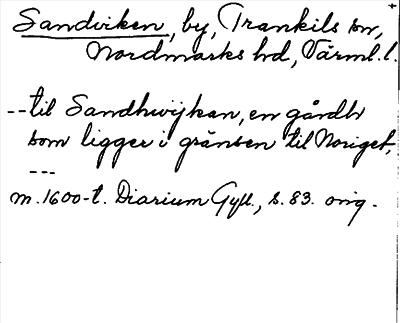 Sandviken, by, Trankils sn,
Nordmarks hd, Värml. l.
---til Sandhwijkan, en gårdh
som ligger i gränsen til Noriget,
---
m. 1600-t. Diarium Gyll., s. 83. orig.